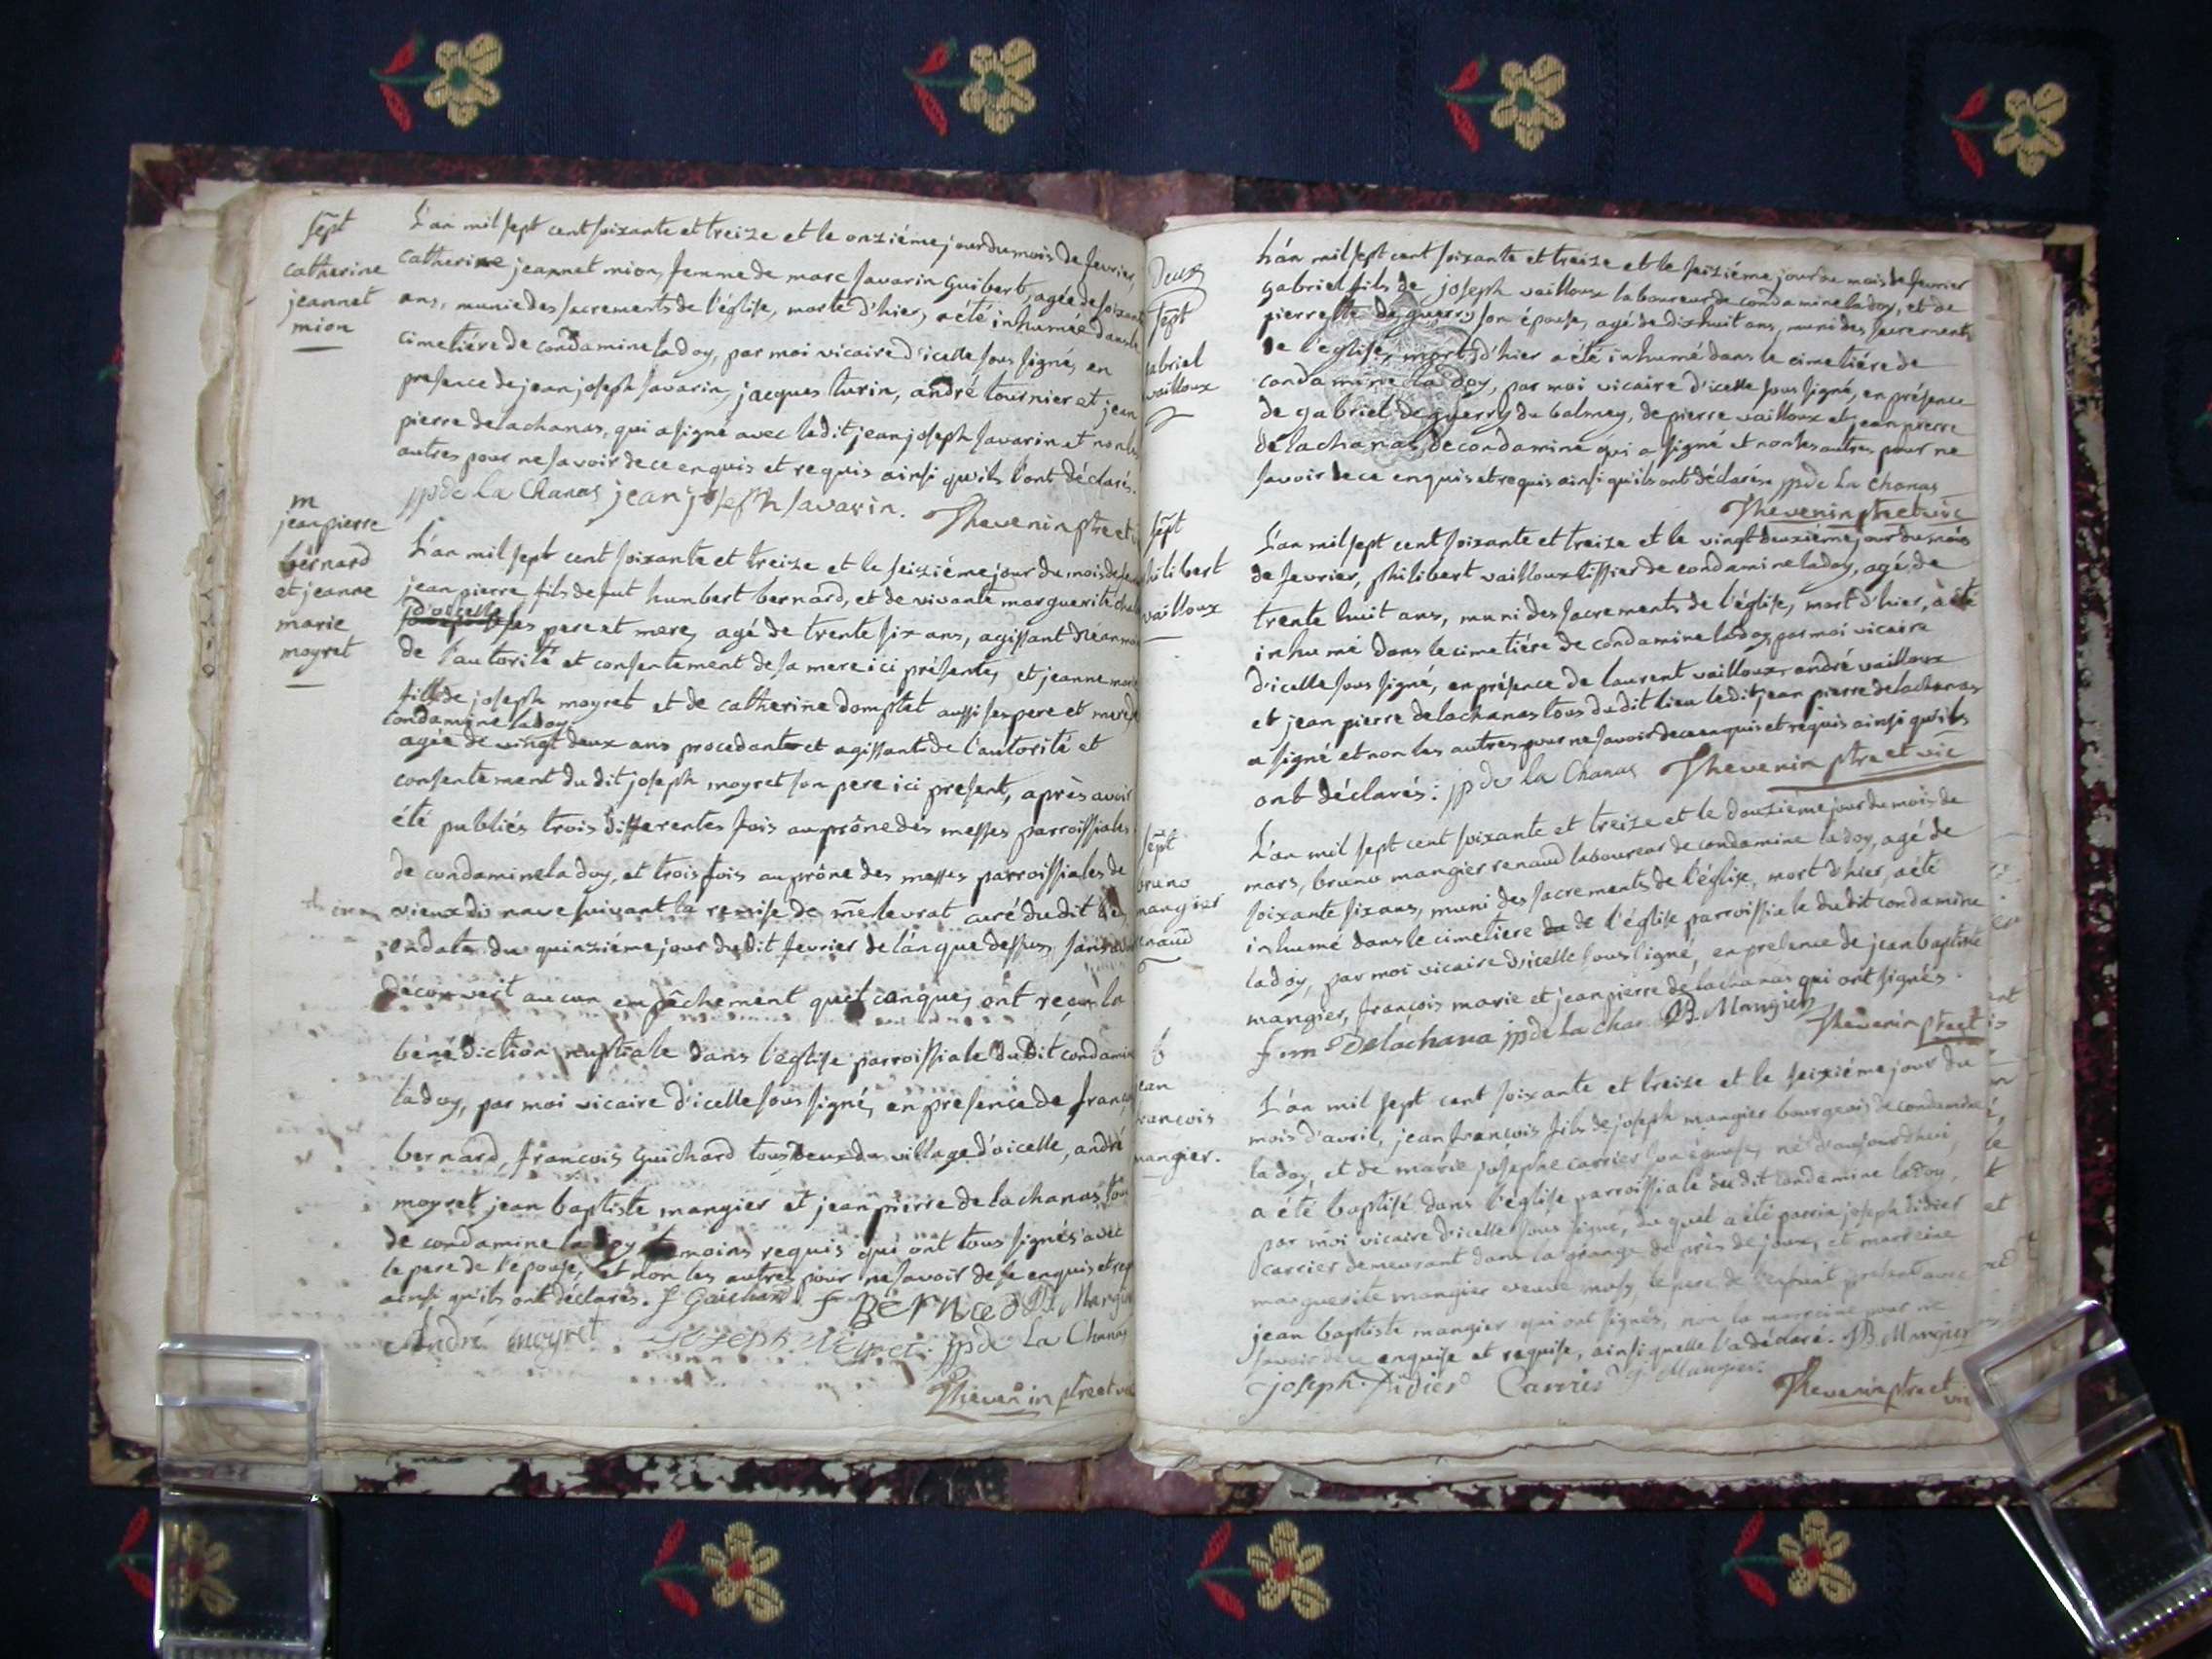 sept
catherine
jeannet
mion
L'an mil sept cent soixante et treize et le onziéme jour du mois de fevrier,
catherine jeannet mion, femme de marc savarin guibert, agée de soixante
ans, munie des sacrements de l'église, morte d'hier, a été inhumée dans le
cimetiére de condamine la doy, par moi vicaire d'icelle sous signé, en
presence de jean joseph savarin, jacques turin, andré tournier et jean
pierre delachanas, qui a signé avec ledit jean joseph savarin et non les
autres pour ne savoir de ce enquis et requis ainsi qu'ils l'ont déclarés.
jpde la Chanas jean joseph savarin. Thevenin ptre et
m
jean pierre
bernard
et jeanne
marie
moyret
L'an mil sept cent soixante et treize et le seiziéme jour du mois de
jean pierre fils de fut humbert bernard, et de vivante marguerite
d'oicelle
ses pere et mere, agé de trente six ans, agissant néanmoins
de l'autorité et consentement de sa mere ici présente, et jeanne marie
fille de joseph moyret et de catherine domptet aussi ses pere et mere de
condamine la doy
agée de vingt deux ans procedante et agissante de l'autorité et
consentement du dit joseph moyret son pere ici present, après avoir
été publiés trois differentes fois au prône des messes parroissiales
de condamine la doy, et trois fois au prône des messes parroissiales de
vieux d'i nave suivant la remise de mre levrat curé du dit
en date du quinziéme jour du dit fevrier de l'an que dessus, sans avoir
découvert aucun empêchement quelconque, ont reçu la
bénédiction nuptiale dans l'église parroissiale du dit condamine
la doy, par moi vicaire d'icelle sous signé, en presence de françois
bernard, francois guichard tous deux du village d'oicelle, andré
moyret jean baptiste mangier et jean pierre de lachanas tous
de condamine la doy temoins requis qui ont tous signés avec
le pere de l'épouse, et non les autres pour ne savoir de ce enquis et req
ainsi qu'ils ont déclarés. f Guichard f BERNARD JB. Mangier
André moyret joseph Meyret jpde La Chanas
Thevenin ptre et vic
Deux
sept
gabriel
vailloux
L'an mil sept cent soixante et treize et le seiziéme jour du mois de fevrier
gabriel fils de joseph vailloux laboureur de condamine la doy, et de
pierrette deguerry son épouse, agé de dix huit ans, muni des sacrements
de l'église, mort d'hier a été inhumé dans le cimetiére de
condamine la doy, par moi vicaire d'icelle sous signé, en présence
de gabriel deguerry du balmey, de pierre vailloux et jean pierre
delachanas de condamine qui a signé et non les autres pour ne
savoir de ce enquis et requis ainsi qu'ils ont déclarés. jpde la Chanas
Thevenin ptre et vic
sept
philibert
vailloux
L'an mil sept cent soixante et treize et le vingt deuxiéme jour du mois
de fevrier, philibert vailloux tissier de condamine la doy, agé de
trente huit ans, muni des sacrements de l'église, mort d'hier, a été
inhumé dans le cimetiére de condamine la doy par moi vicaire
d'icelle sous signé, en présence de laurent vailloux, andré vailloux
et jean pierre delachanas tous du dit lieu le dit jean pierre delachanas
a signé et non les autres pour ne savoir de ce enquis et requis ainsi qu'ils
ont déclarés: jpde la Chanas Thevenin ptre et vic
sept
bruno
mangier
renaud
L'an mil sept cent soixante et treize et le douziéme jour du mois de
mars, bruno mangier renaud laboureur de condamine la doy, agé de
soixante six ans, muni des sacrements de l'église, mort d'hier, a été
inhumé dans le cimetiere de l'église parroissiale du dit condamine
la doy, par moi vicaire d'icelle sous signé, en presence de jean baptiste
mangier, françois marie et jean pierre delachanas qui ont signés.
f m Delachana jpde la Cha JB. Mangier Thevenin ptre et
b
jean
francois
mangier.
L'an mil sept cent soixante et treize et le seiziéme jour du
mois d'avril, jean francois fils de joseph mangier bourgeois de condamine
la doy, et de marie josephe carrier son épouse, né d'aujourdhui,
a été baptisé dans l'église parroissiale du dit condamine la doy,
par moi vicaire d'icelle sous signé, du quel a été parrin joseph didier
carrier demeurant dans la grange de près de joux, et marreine
marguerite mangier veuve, le pere de l'enfant present avec
jean baptiste mangier qui ont signés, non la marreine pour ne
savoir de ce enquise et requise, ainsi quelle l'a déclaré. JB Mangier
joseph Didier Carrier j Mangier. Thevenin ptre et
vic